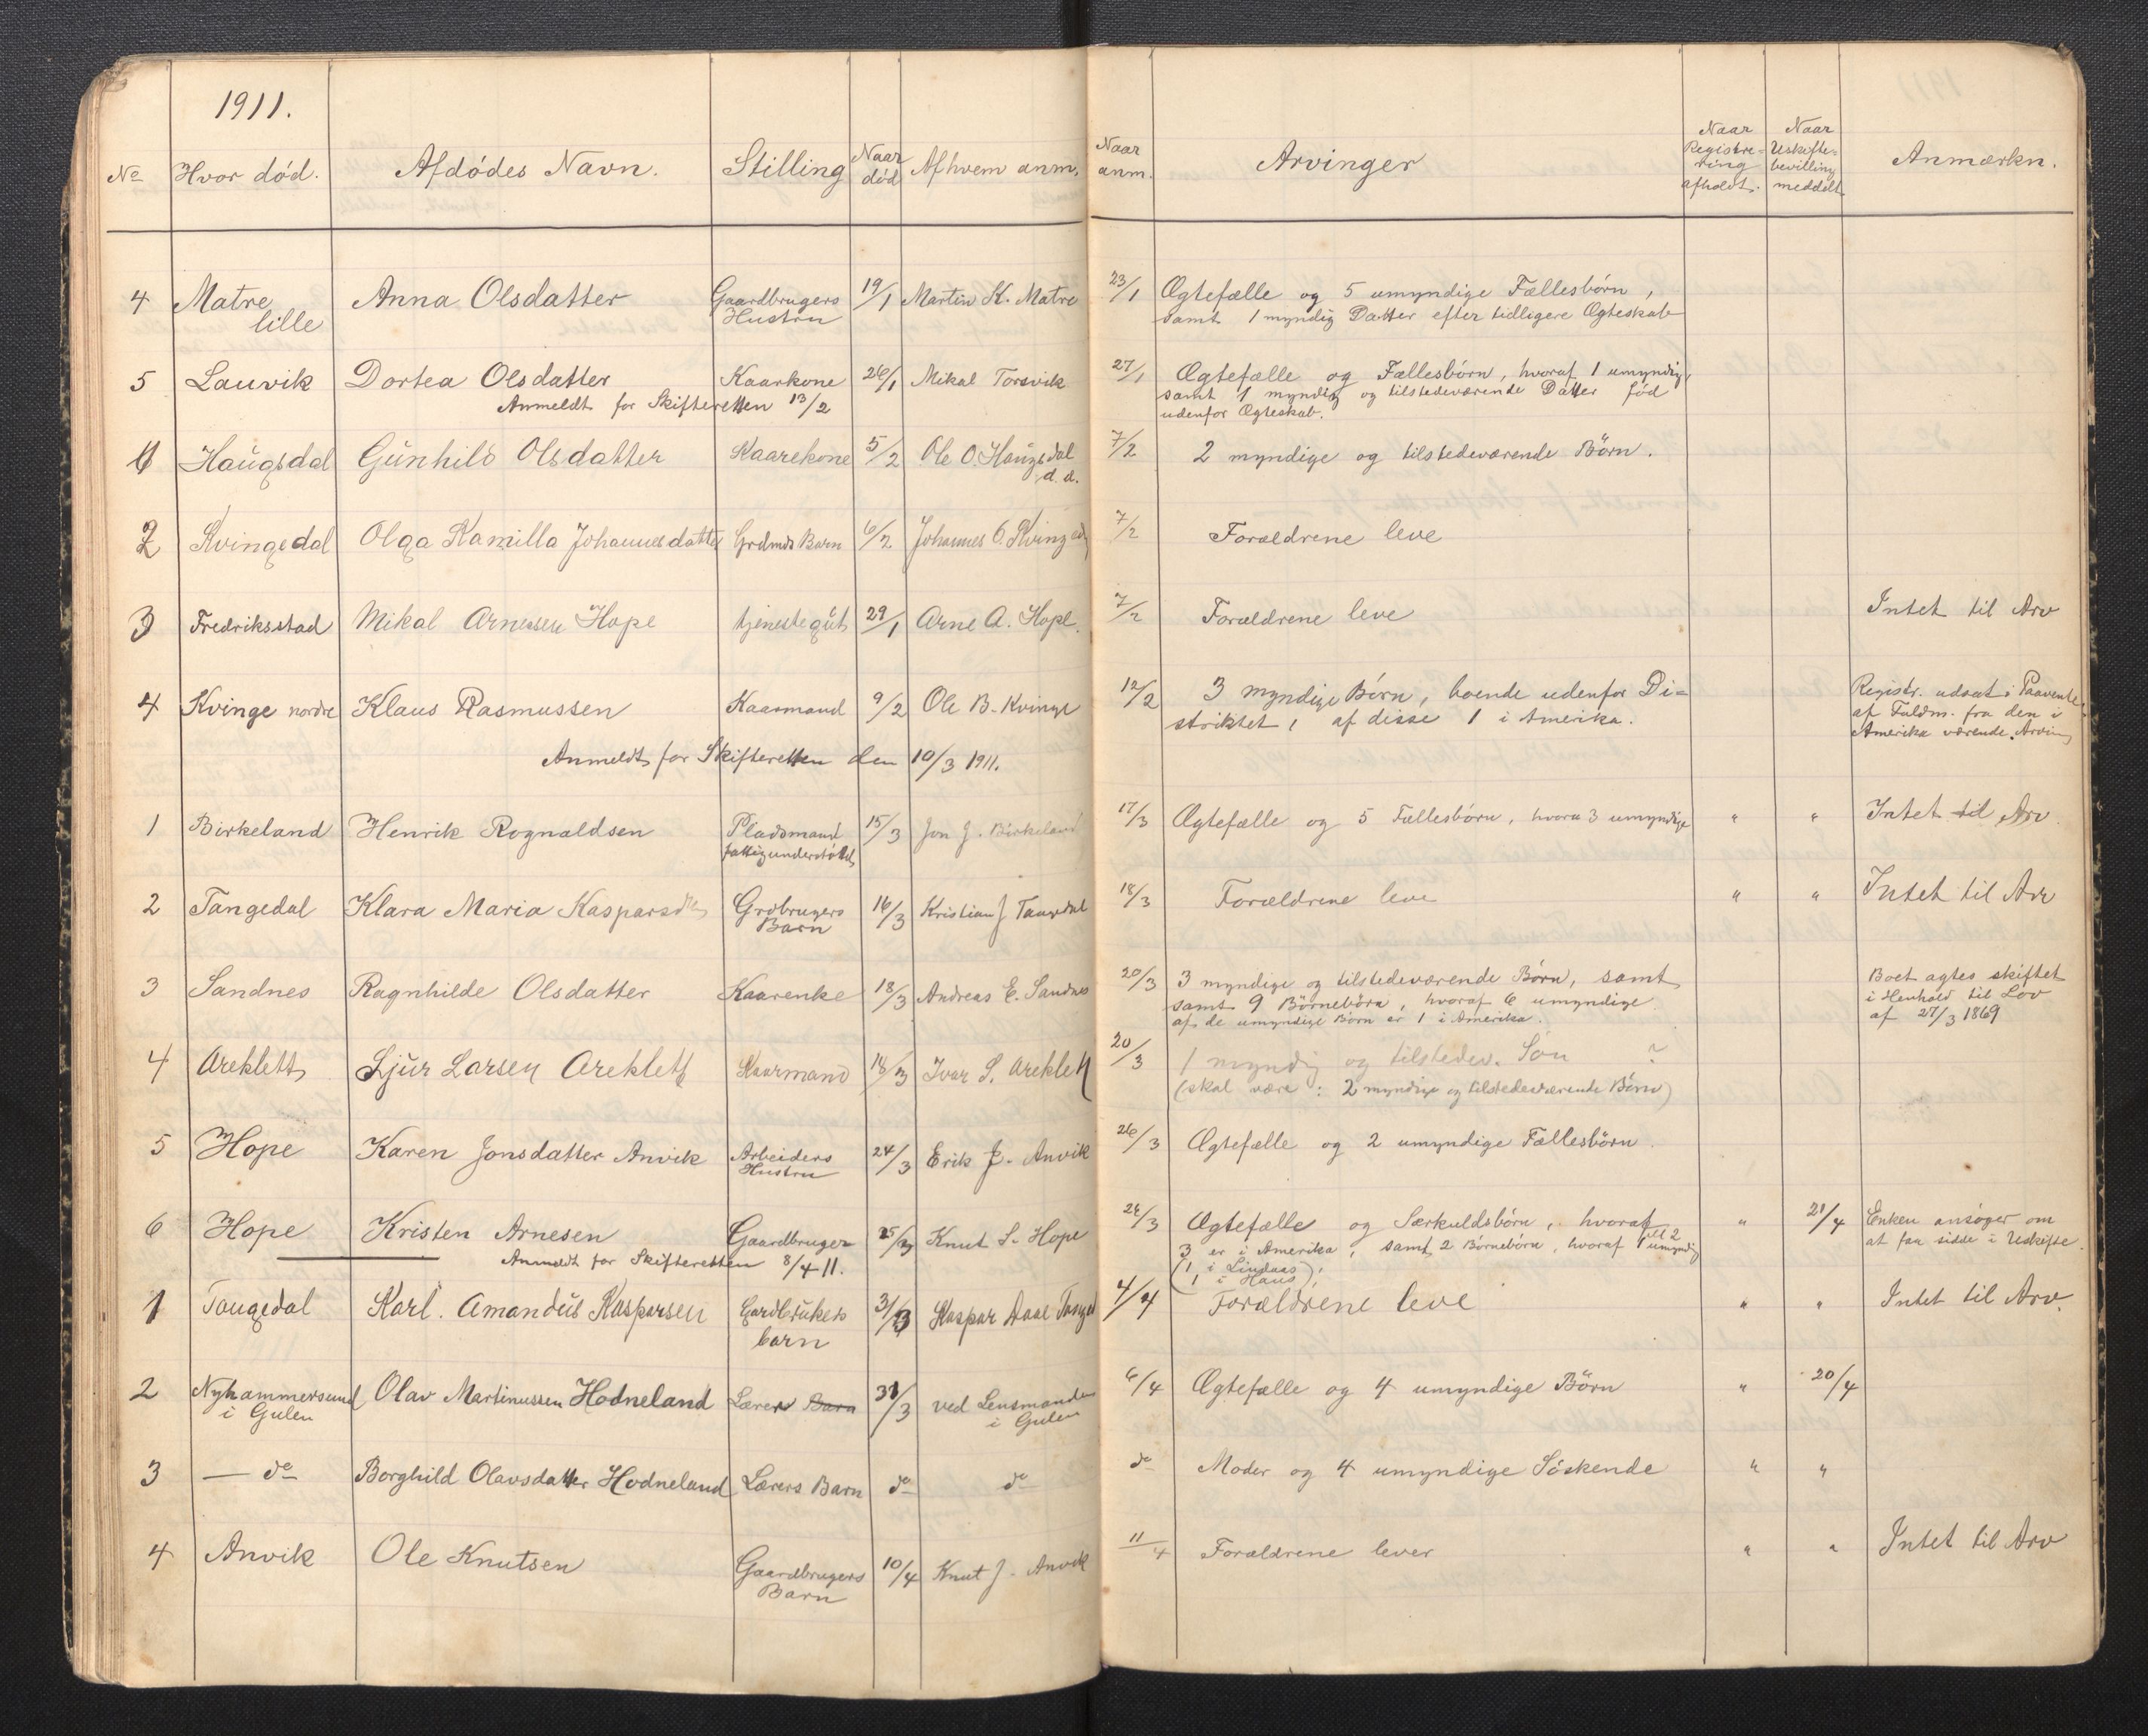 1911.
No Hvor död. Afdödes Navn. Stilling Naar död Af hvem anm. Naar anm. Arvinger Naar Registre-ring afholdt. Naar Uskifte-bevilling meddelt Anmærkn.
4 Matre lille Anna Olsdatter Gaardbrugers Hustru 19/1 Martin K. Matre 23/1 Ægtefælle og 5 umyndige Fællesbörn,
samt 1 myndig Datter efter tidligere Ægteskab
5 Lauvik Dortea Olsdatter Kaarkone 26/1 Mikal Torsvik 27/1 Ægtefælle og Fællesbörn, hvoraf 1 umyndig,
samt 1 myndig og tilstedeværende Datter föd
udenfor Ægteskab.
Anmeldt for Skifteretten 13/2
1 Haugsdal Gunhild Olsdatter Kaarekone 5/2 Ole O. Haugsdal d.d. 7/2 2 myndige og tilstedeværende Börn.
2 Kvingedal Olga Kamilla Johannesdatter Grdmds Barn 6/2 Johannes O. Kvinged 7/2 Forældrene leve
3 Fredriksstad Mikal Arnesen Hope tjenestegut 29/1 Arne A. Hope. 7/2 Forældrene leve Intet til Arv
4 Kvinge nordre Klaus Rasmussen Kaarmand 9/2 Ole B. Kvinge 12/2 3 myndige Börn, boende udenfor Di=
striktet, af disse 1 i Amerika.
Registr. udsat i Paavente
af Fuldm. fra den i
Amerika værende Arving
Anmeldt for Skifteretten den 10/3 1911.
1 Birkeland Henrik Rognaldsen Pladsmand fattigunderstöttet 15/3 Jon J. Birkeland 17/3 Ægtefælle og 5 Fællesbörn, hvoraf 3 umyndige " " Intet til Arv.
2 Tangedal Klara Maria Kasparsdtr Grdbrugers Barn 16/3 Kristian J Tangedal 18/3 Forældrene leve " " Intet til Arv
3 Sandnes Ragnhilde Olsdatter Kaarenke 18/3 Andreas E. Sandnes 20/3 3 myndige og tilstedeværende Börn, samt
samt 9 Börnebörn, hvoraf 6 umyndige
af de umyndige Börn er 1 i Amerika.
Boet agtes skiftet
i Henhold til Lov
af 27/3 1869
4 Areklett Sjur Larsen Areklett Kaarmand 18/3 Ivar S. Areklett 20/3 1 myndig og tilstedev. Sön ?
(skal være: 2 myndige og tilstedeværende Börn)
5 Hope Karen Jonsdatter Anvik Arbeiders Hustru 24/3 Erik J. Anvik 26/3 Ægtefælle og 2 umyndige Fællesbörn.
6 Hope Kristen Arnesen Gaardbruger 25/3 Knut S. Hope 26/3 Ægtefælle og Særkuldsbörn, hvoraf
3 er i Amerika, samt 2 Börnebörn, hvoraf 1 umyndig
(1 i Lindaas),
(1 i Haus),
" 21/4 Enken ansöger om
at faa sidde i Uskifte.
Anmeldt for Skifteretten 8/4 11.
1 Tangedal Karl. Amandus Kasparsen Gardbrukers barn 31/3 Kaspar Daae Tanged 4/4 Forældrene leve " " Intet til Arv.
2 Nyhammersund i Gulen Olav Martinussen Hodneland Lærer Barn 31/3 ved Lensmanden i Gulen 6/4 Ægtefælle og 4 umyndige Börn " 20/4
3 — do Borghild Olavsdatter Hodneland Lærers Barn do do do Moder og 4 umyndige Söskende " "
4 Anvik Ole Knutsen Gaardbrugers Barn 10/4 Knut J. Anvik 11/4 Forældrene lever " " Intet til Arv